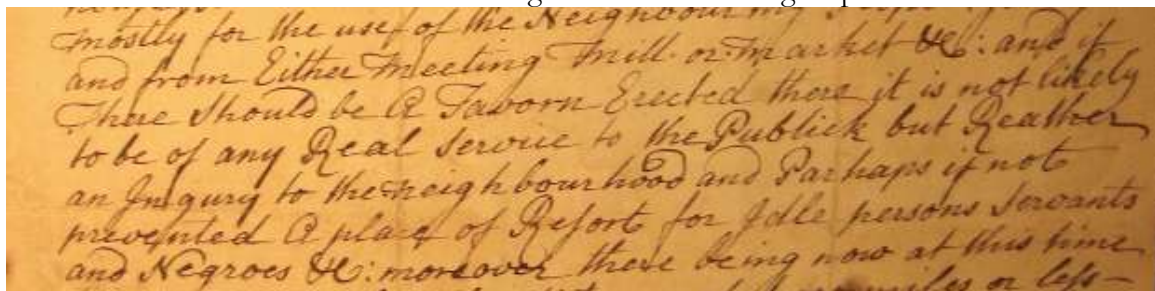 mostly for the use of the Neighbouring
and from Either Meeting Mill or Market &c: and if
There Should be A Tavorn Erected there it is not likely
to be of any Real Service to the Publick but Reather
an Injqury to the neighbourhood and Parhaps if not
prevented A place of Resort for Idle persons Servants
and Negroes &c: moreover there being now at this time
miles or less